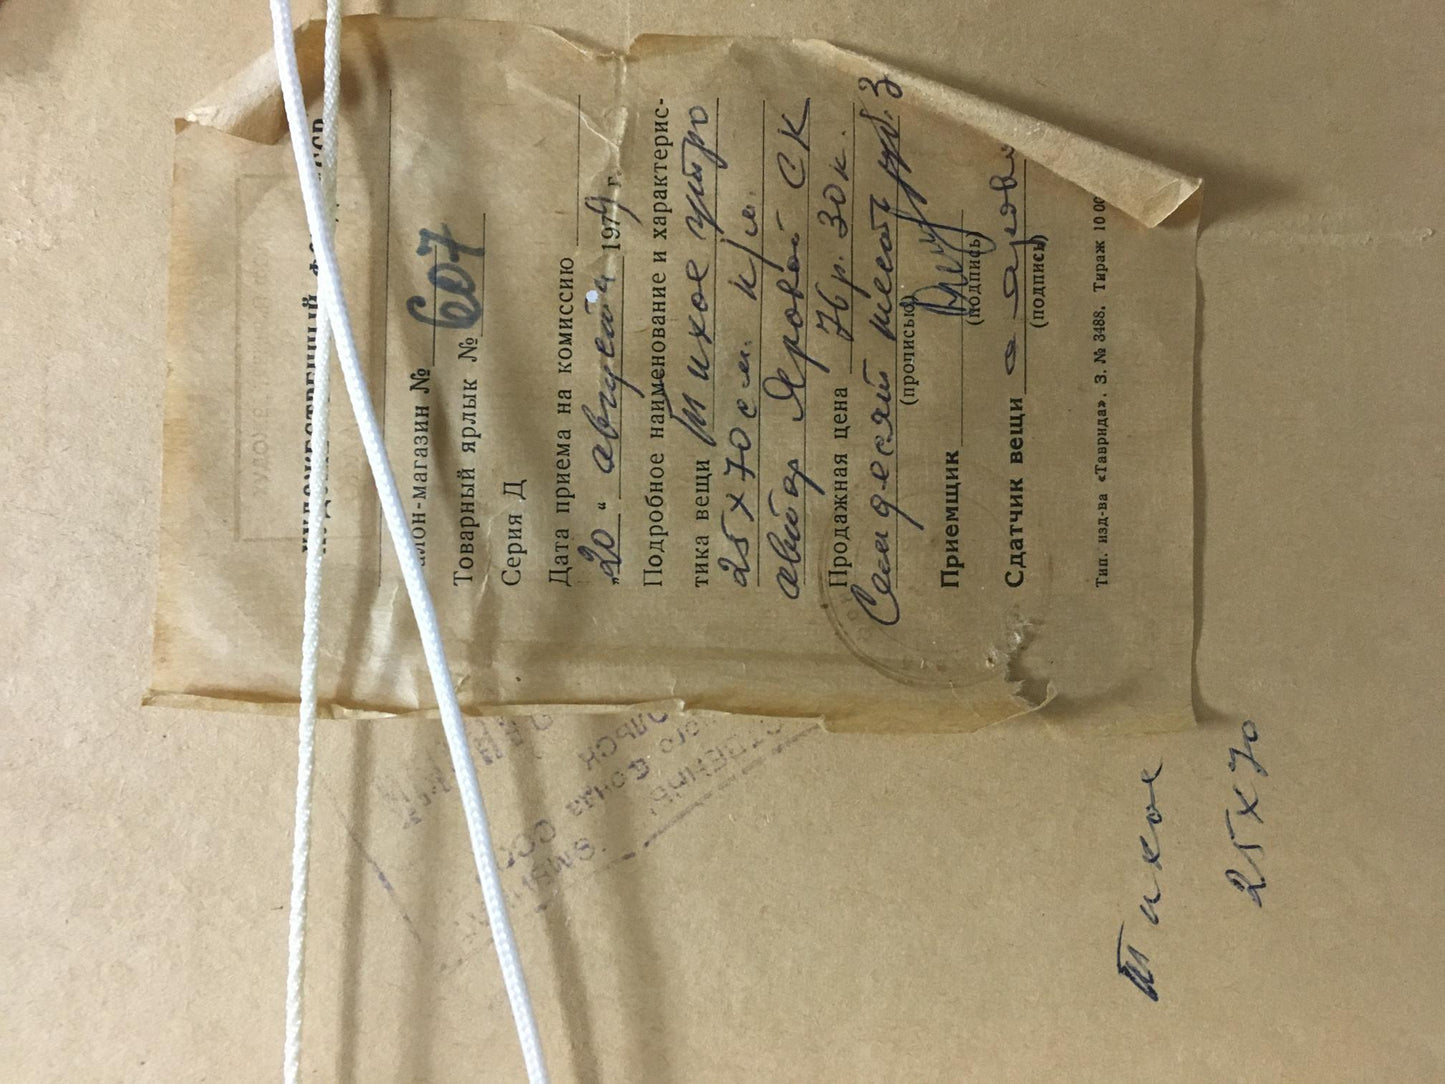 ХУДОЖЕСТВЕННЫЙ СССР
Товарный ярлык № 607
Серия Д
Дата приема на комиссию
„20“ августа 1979 г.
Подробное наименование и характерис-
тика вещи Тихое утро
25 х 70 см. к/м.
автор Яровой СК
Продажная цена 76 р. 30 к.
Семьдесят шесть руб. 3
(прописью)
Приемщик
(подпись)
Сдатчик вещи
(подпись)
Тип. изд-ва «Таврида». З. № 3488. Тираж 10 00
Тихое
25 х 70